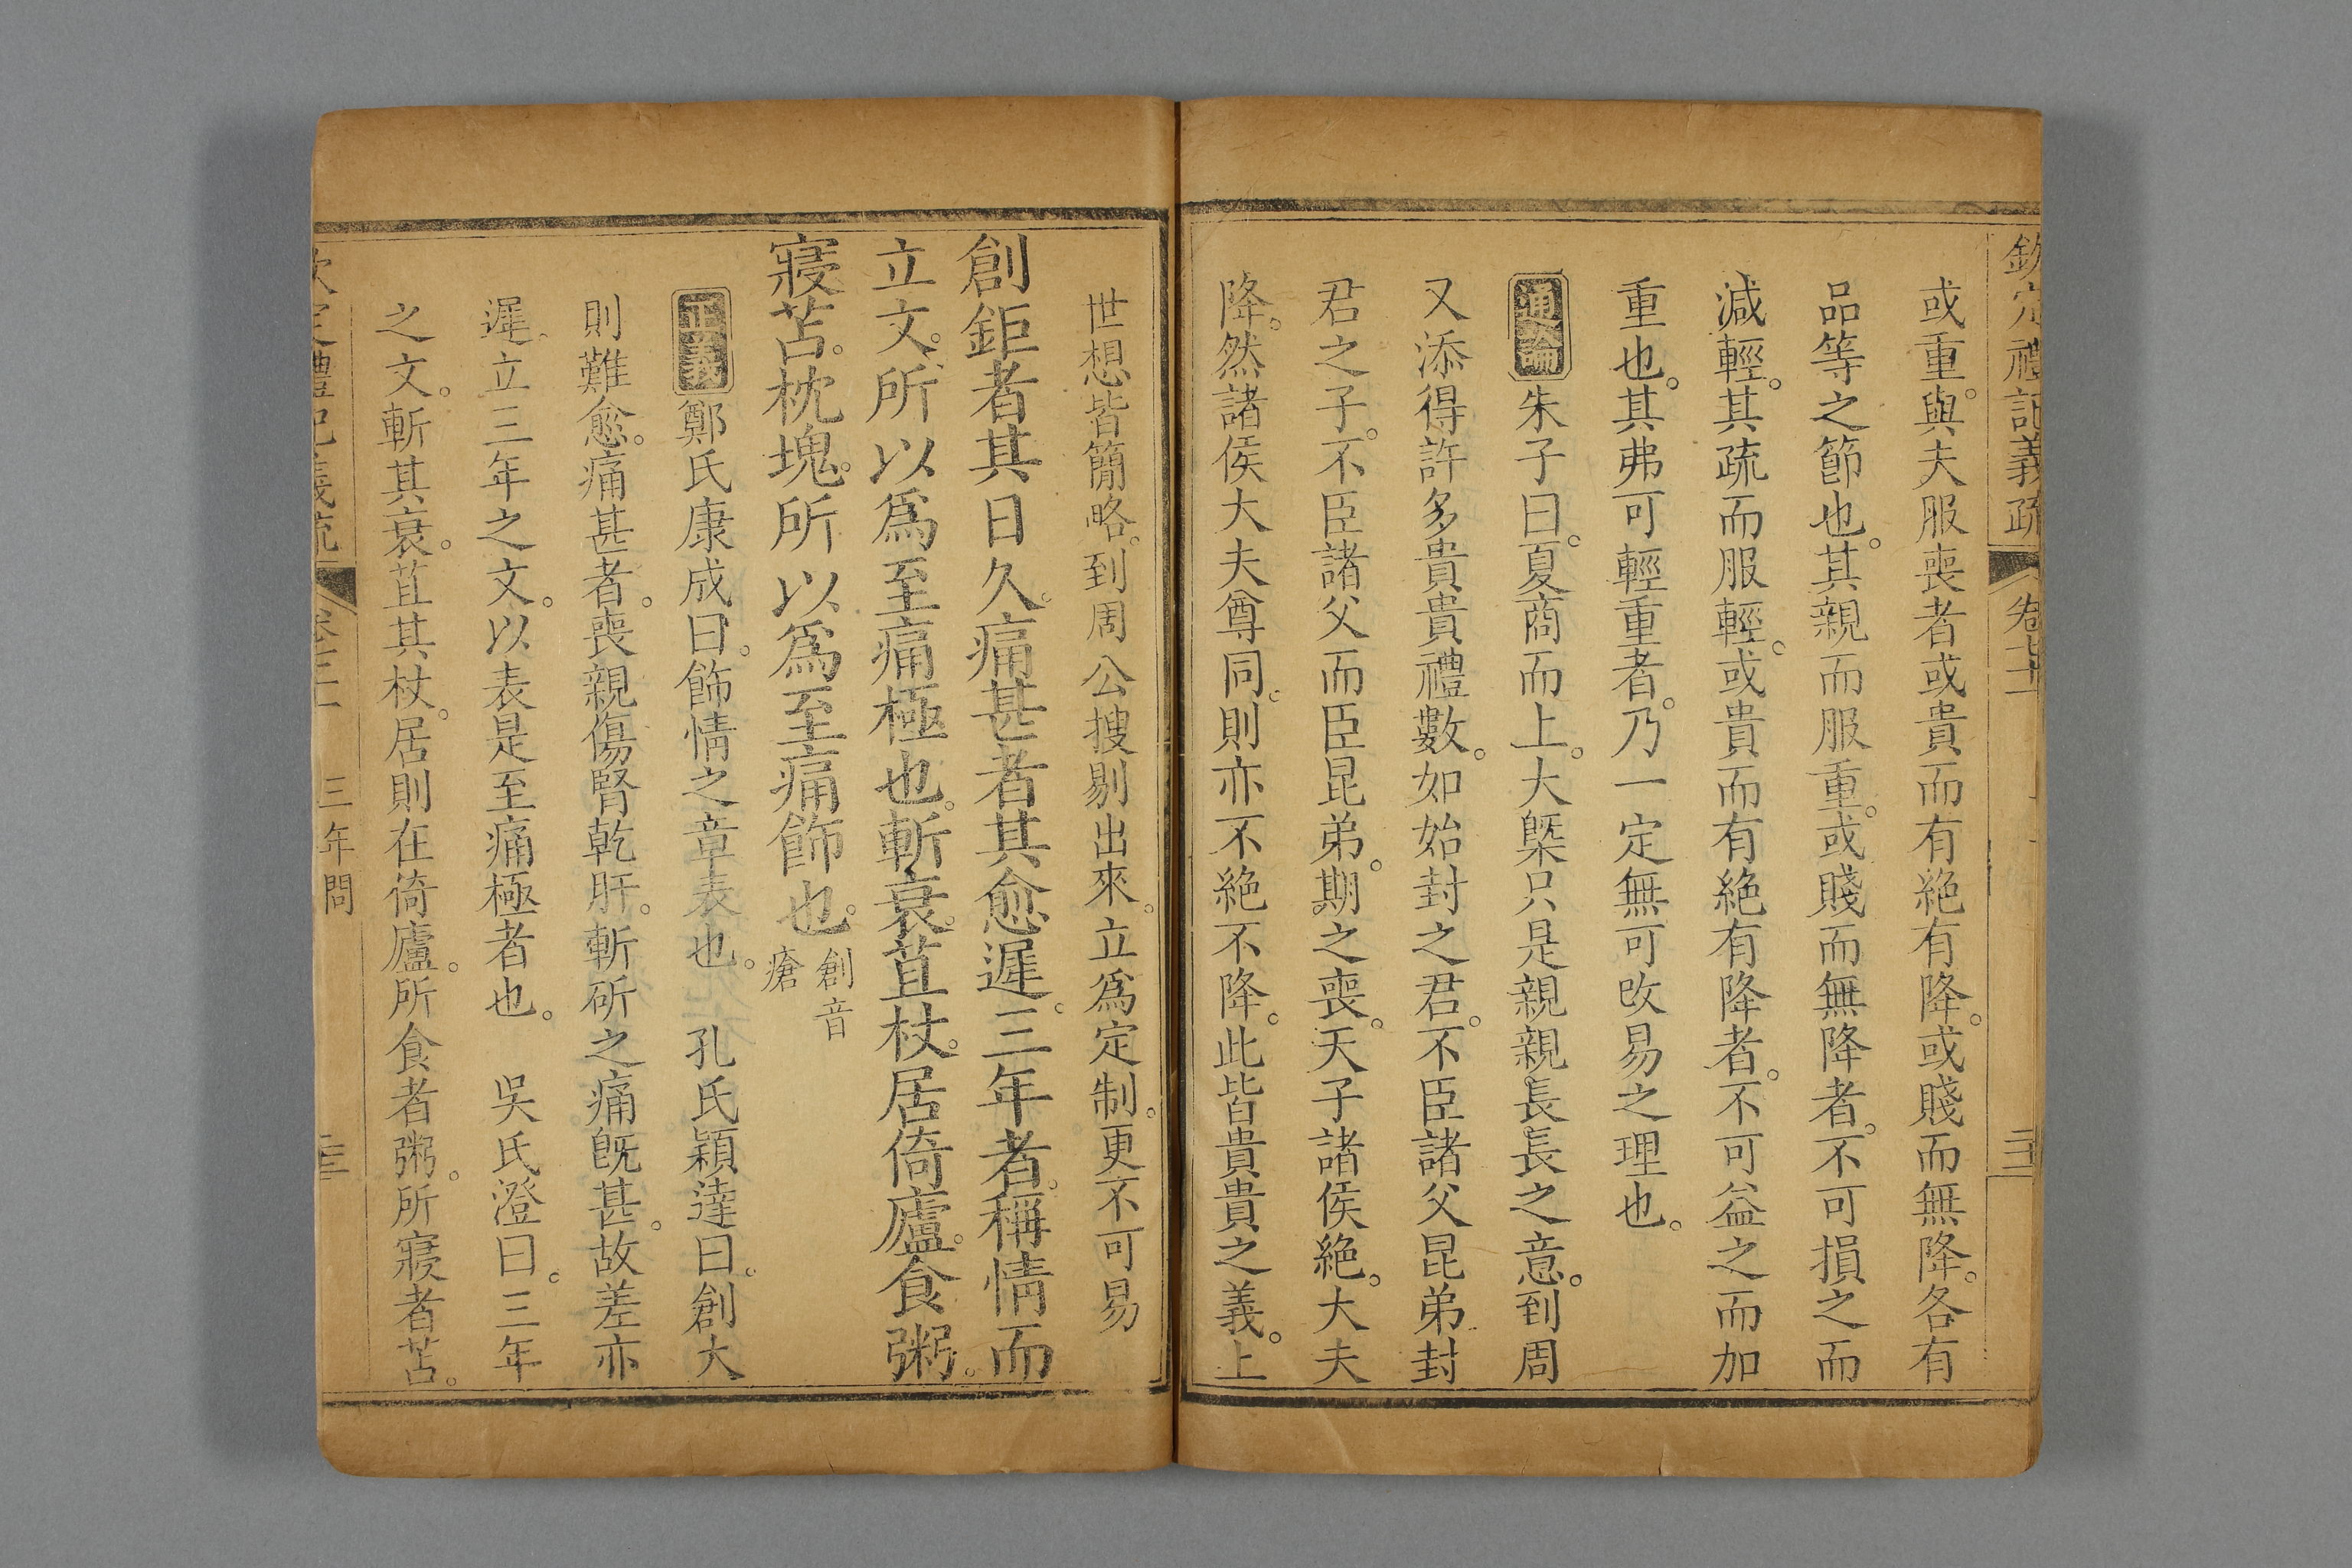 欽定禮記義疏 卷七十二
或重。與夫服喪者或貴而有絶有降。或賤而無降。各有
品等之節也。其親而服重。或賤而無降者。不可損之而
減輕。其疏而服輕。或貴而有絶有降者。不可益之而加
重也。其弗可輕重者。乃一定無可改易之理也。
通論 朱子曰。夏商而上。大槩只是親親長長之意。到周
又添得許多貴貴禮數。如始封之君。不臣諸父昆弟封
君之子。不臣諸父而臣昆弟。期之喪。天子諸侯絶。大夫
降。然諸侯大夫尊同。則亦不絶不降。此皆貴貴之義。上
世想皆簡略。到周公搜剔出來。立爲定制。更不可易
創鉅者其日久。痛甚者其愈遲。三年者。稱情而
立文。所以爲至痛極也。斬衰。苴杖。居倚廬。食粥。
寢苫。枕塊。所以爲至痛飾也。創音瘡
正義 鄭氏康成曰。飾情之章表也。 孔氏穎達曰。創大
則難愈。痛甚者。喪親傷腎乾肝。斬斫之痛旣甚。故差亦
遲。立三年之文。以表是至痛極者也。 吳氏澄曰。三年
之文。斬其衰。苴其杖。居則在倚廬。所食者粥。所寢者苫。
三年問